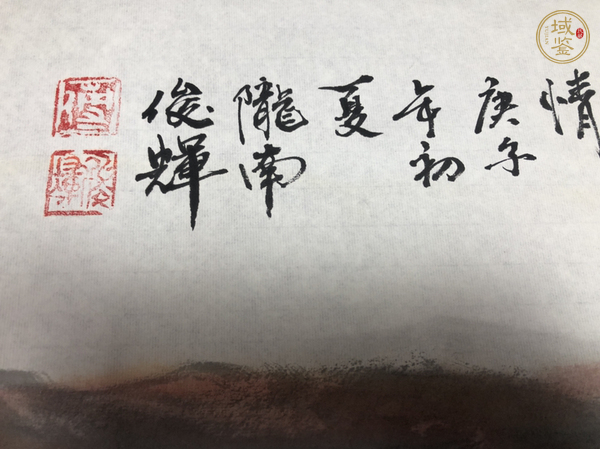 情
庚子
年初
夏
隴南
俊輝
域鉴